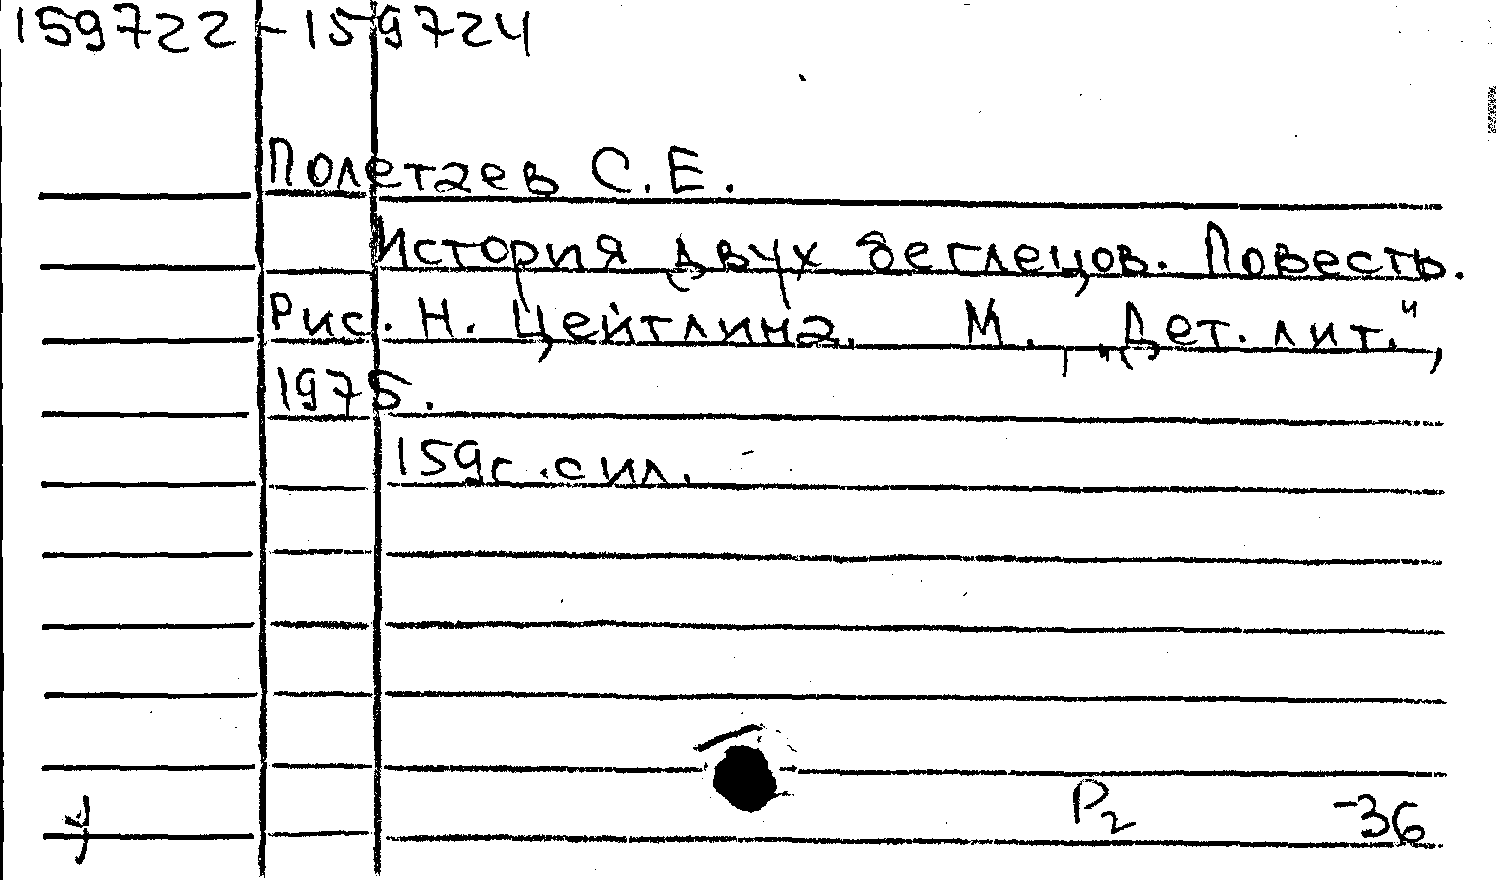 159722-159724
Полетаев С. Е.
История двух беглецов. Повесть.
Рис. Н. Цейтлина. М., „Дет. лит.",
1975.
159с. с ил.
Р2 -36